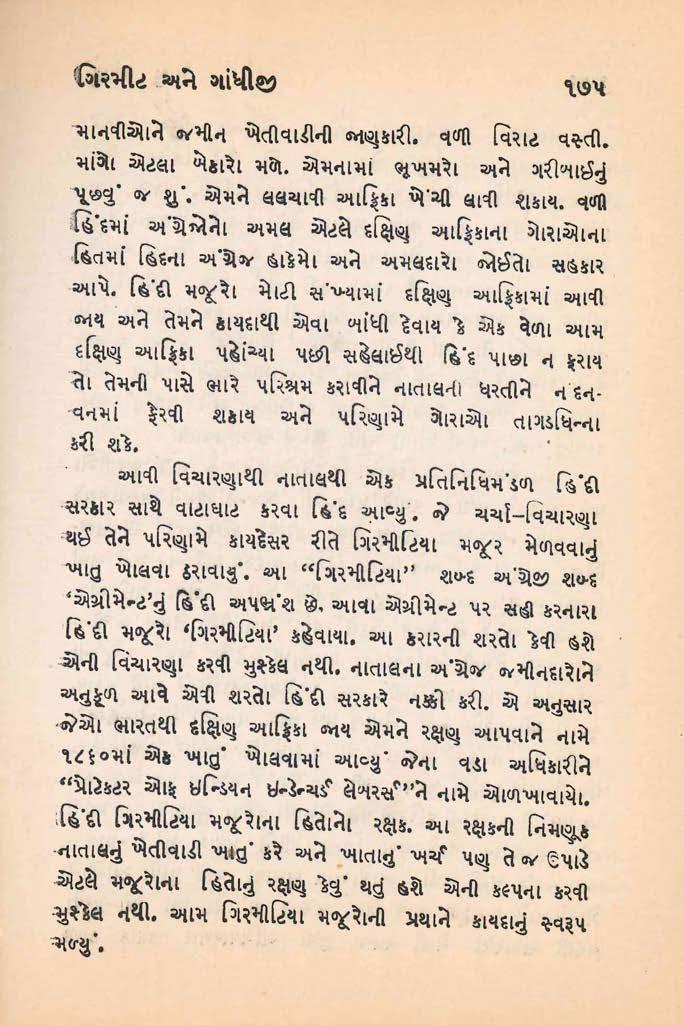 ગિરમીટ અને ગાંધીજી ૧૭૫
માનવીઓને જમીન ખેતીવાડીની જાણકારી. વળી વિરાટ વસ્તી.
માંગો એટલા બેકારો મળે. એમનામાં ભૂખમરો અને ગરીબાઈનું
પૂછવું જ શું. એમને લલચાવી આફ્રિકા ખેંચી લાવી શકાય. વળી
હિંદમાં અંગ્રેજોનો અમલ એટલે દક્ષિણ આફ્રિકાના ગોરાઓના
હિતમાં હિદના અંગ્રેજ હાકેમો અને અમલદારો જોઈતો સહકાર
આપે. હિંદી મજૂરો મોટી સંખ્યામાં દક્ષિણ આફ્રિકામાં આવી
જાય અને તેમને કાયદાથી એવા બાંધી દેવાય કે એક વેળા આમ
દક્ષિણ આફ્રિકા પહોંચ્યા પછી સહેલાઈથી હિંદ પાછા ન ફરાય
તો તેમની પાસે ભારે પરિશ્રમ કરાવીને નાતાલની ધરતીને નંદન-
વનમાં ફેરવી શકાય અને પરિણામે ગોરાઓ તાગડધિન્ના
કરી શકે.
આવી વિચારણાથી નાતાલથી એક પ્રતિનિધિમંડળ હિંદી
સરકાર સાથે વાટાઘાટ કરવા હિંદ આવ્યું. જે ચર્ચા–વિચારણા
થઈ તેને પરિણામે કાયદેસર રીતે ગિરમીટિયા મજૂર મેળવવાનું
ખાતુ ખોલવા ઠરાવાયું. આ “ગિરમીટિયા” શબ્દ અંગ્રેજી શબ્દ
‘એગ્રીમેન્ટ’નું હિંદી અપભ્રંશ છે, આવા એગ્રીમેન્ટ પર સહી કરનારા
હિંદી મજૂરો ‘ગિરમીટિયા’ કહેવાયા. આ કરારની શરતો કેવી હશે
એની વિચારણા કરવી મુશ્કેલ નથી. નાતાલના અંગ્રેજ જમીનદારોને
અનુકૂળ આવે એવી શરતો હિંદી સરકારે નક્કી કરી. એ અનુસાર
જેઓ ભારતથી દક્ષિણ આફ્રિકા જાય એમને રક્ષણ આપવાને નામે
૧૮૬૦માં એક ખાતું ખોલવામાં આવ્યું જેના વડા અધિકારીને
“પ્રોટેકટર ઓફ ઇન્ડિયન ઇન્ડેન્ચર્ડ લેબરર્સ”ને નામે ઓળખાવાયો.
હિંદી ગિરમીટિયા મજૂરોના હિતોનો રક્ષક. આ રક્ષકની નિમણૂક
નાતાલનું ખેતીવાડી ખાતું કરે અને ખાતાનું ખર્ચ પણ તે જ ઉપાડે
એટલે મજૂરોના હિતોનું રક્ષણ કેવું થતું હશે એની કલ્પના કરવી
મુશ્કેલ નથી. આમ ગિરમીટિયા મજૂરોની પ્રથાને કાયદાનું સ્વરૂપ
મળ્યું.